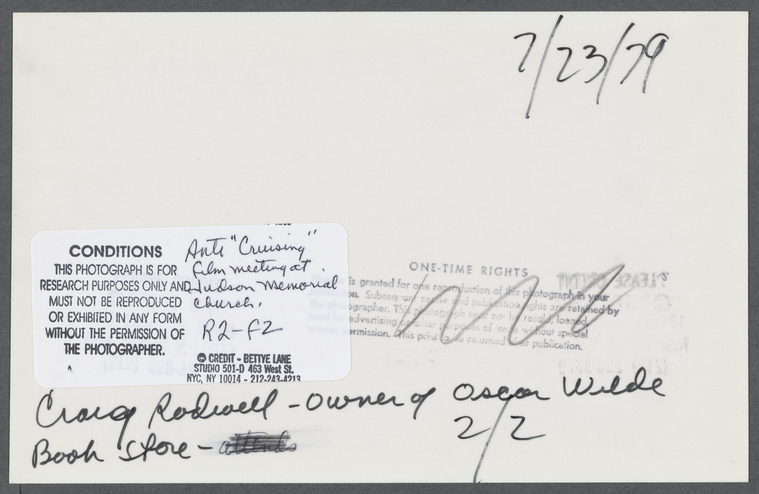 7/23/79
CONDITIONS
THIS PHOTOGRAPH IS FOR
RESEARCH PURPOSES ONLY AND
MUST NOT BE REPRODUCED
OR EXHIBITED IN ANY FORM
WITHOUT THE PERMISSION OF
THE PHOTOGRAPHER.
Anti "Cruising"
film meeting at
Hudson Memorial
Church.
R2-F2
© CREDIT - BETTYE LANE
STUDIO 501-D 463 West St.
NYC, NY 10014 - 212-243-4213
ONE-TIME RIGHTS
is granted for one reproduction of this photograph in your
Subsequent and publication rights are retained by
photographer. This photograph must not be resold, loaned
advertising or other purposes of without special
permission. This print returned after publication.
PLEASE
Craig Rodwell - owner of Oscar Wilde
Book Store - attends
2/2